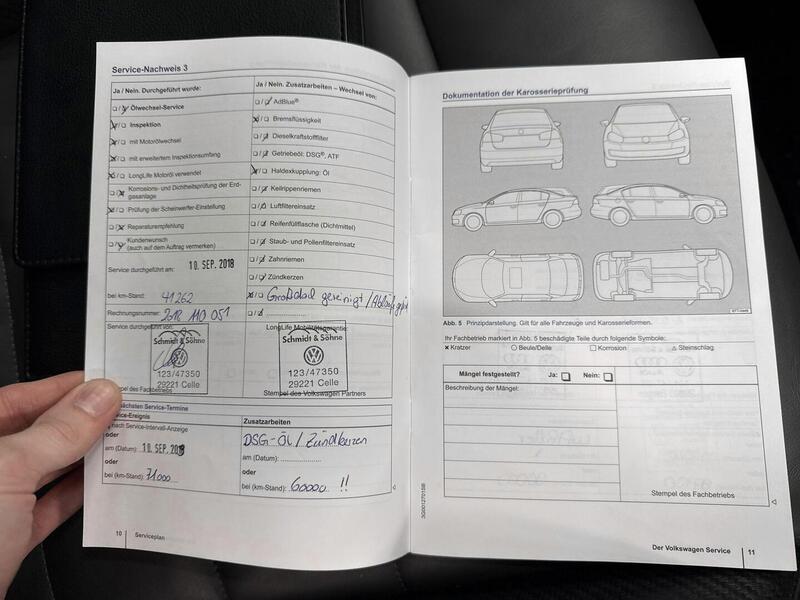 Service-Nachweis 3
Ja / Nein. Durchgeführt wurde:
Ölwechsel-Service
Inspektion
mit Motorölwechsel
mit erweitertem Inspektionsumfang
LongLife Motoröl verwendet
Korrosions- und Dichtheitsprüfung der Erd-
gasanlage
Prüfung der Scheinwerfer-Einstellung
Reparaturempfehlung
Kundenwunsch
(auch auf dem Auftrag vermerken)
Service durchgeführt am: 10. SEP. 2018
bei km-Stand: 41262
Rechnungsnummer: 2018 110 051
Service durchgeführt von:
Schmidt & Söhne
123/47350
29221 Celle
Stempel des Fachbetriebs
Ja / Nein. Zusatzarbeiten – Wechsel von:
AdBlue®
Bremsflüssigkeit
Dieselkraftstofffilter
Getriebeöl: DSG®, ATF
Haldexkupplung: Öl
Keilrippenriemen
Luftfiltereinsatz
Reifenfüllflasche (Dichtmittel)
Staub- und Pollenfiltereinsatz
Zahnriemen
Zündkerzen
gereinigt /
LongLife Mobilitätsgarantie:
Schmidt & Söhne
123/47350
29221 Celle
Stempel des Volkswagen Partners
nächsten Service-Termine
Service-Ereignis
nach Service-Intervall-Anzeige
oder
am (Datum): 10. SEP.
oder
bei (km-Stand): 71000
Zusatzarbeiten
DSG-Öl / Zündkerzen
am (Datum):
oder
bei (km-Stand): 60000 !!
10 Serviceplan
Dokumentation der Karosserieprüfung
Abb. 5 Prinzipdarstellung. Gilt für alle Fahrzeuge und Karosserieformen.
Ihr Fachbetrieb markiert in Abb. 5 beschädigte Teile durch folgende Symbole:
Kratzer Beule/Delle Korrosion Steinschlag
Mängel festgestellt? Ja: Nein:
Beschreibung der Mängel:
Stempel des Fachbetriebs
3G0012701SB
Der Volkswagen Service 11